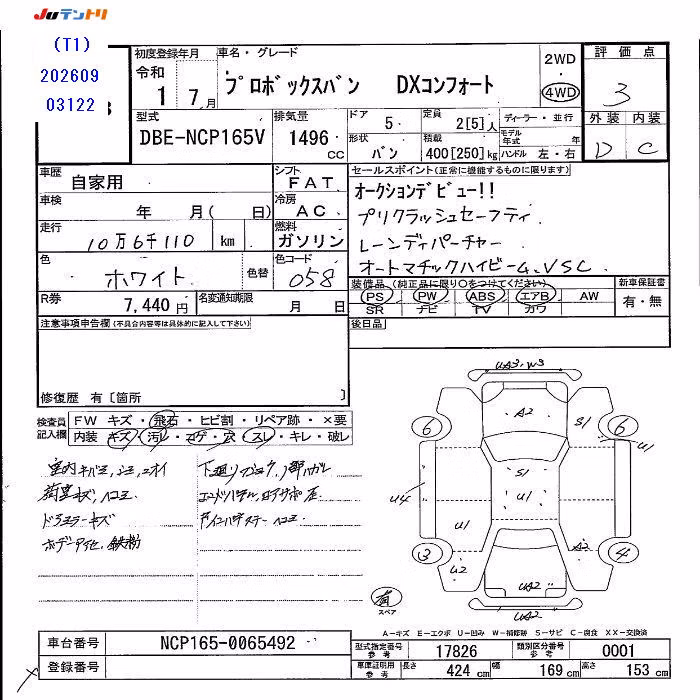 JUテントリ
(T1)
202609
03122
初度登録年月
令和
1 7月
車名・グレード
プロボックスバン DXコンフォート
2WD
4WD
評価点
3
外装 内装
D C
型式
DBE-NCP165V
排気量
1496 cc
ドア
5
形状
バン
定員
2[5]人
積載
400[250]kg
ディーラー・並行
モデル年式 年
ハンドル 左・右
車歴
自家用
シフト
FAT
車検
年 月( 日)
冷房
AC
走行
10万6千110 km
燃料
ガソリン
色
ホワイト
色替
色コード
058
R券
7,440円
名変通知期限
月 日
セールスポイント(正常に機能するものに限ります)
オークションデビュー!!
プリクラッシュセーフティ
レーンディパーチャー
オートマチックハイビーム、VSC
装備品(純正品に限り○をつけてください)
PS PW ABS エアB AW
SR ナビ TV カワ
新車保証書
有・無
注意事項申告欄(不具合内容等は具体的に記入して下さい)
後日品
修復歴 有[箇所 ]
検査員記入欄
FW キズ・飛石・ヒビ割・リペア跡・×要
内装 キズ・汚レ・コゲ・穴・スレ・キレ・破レ
室内キバミ、シミ、ニオイ
荷室キズ、ヘコミ
ドアミラーキズ
ボデー 鉄粉
UA3、W3
A2
S1
6
6
U1
S1
U1
U4
U1
A2
3
4
U2
UA2
UA2
有
スペア
A-キズ E-エクボ U-凹み W-補修跡 S-サビ C-腐食 XX-交換済
車台番号
NCP165-0065492
登録番号
型式指定番号 参考
17826
類別区分番号 参考
0001
車庫証明用 参考
長さ 424cm 幅 169cm 高さ 153cm